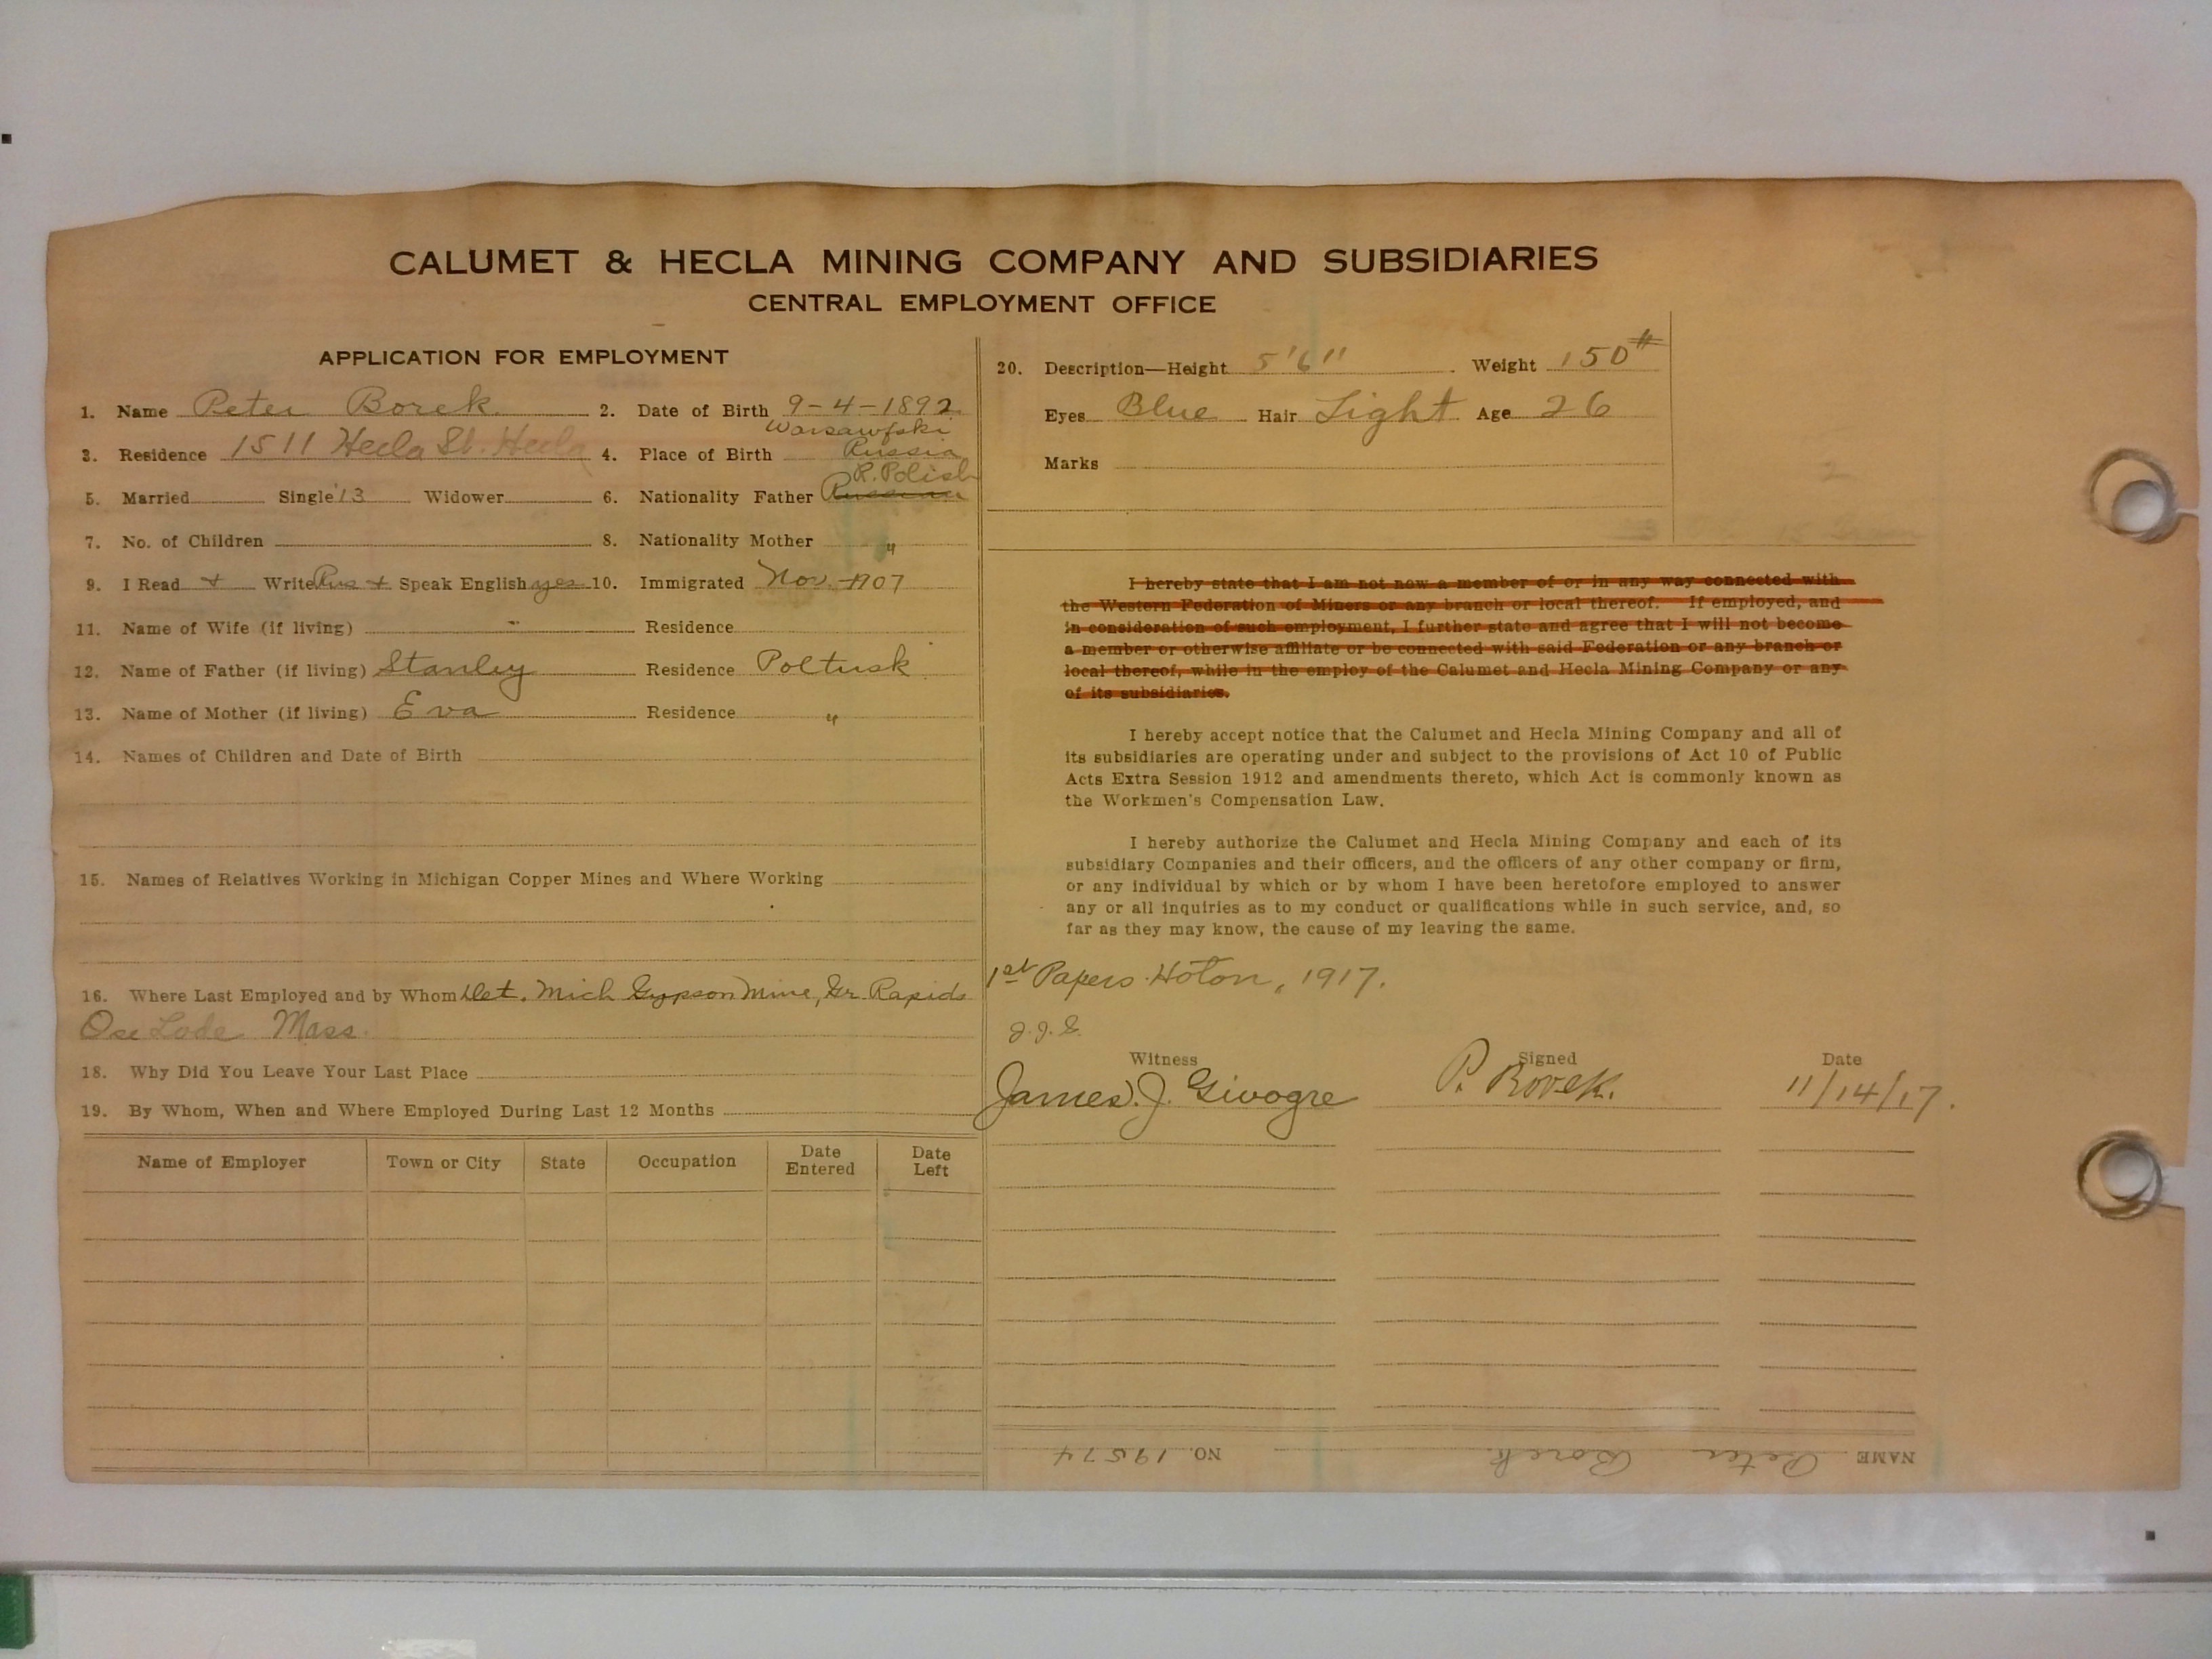 CALUMET & HECLA MINING COMPANY AND SUBSIDIARIES
CENTRAL EMPLOYMENT OFFICE
APPLICATION FOR EMPLOYMENT
1. Name Peter Borek 2. Date of Birth 9-4-1892
Warsawfski
3. Residence 1511 Hecla St. Hecla 4. Place of Birth Russia
R. Polish
5. Married Single 13 Widower 6. Nationality Father Russian
7. No. of Children 8. Nationality Mother "
9. I Read + Write Rus + Speak English yes 10. Immigrated Nov. 1907
11. Name of Wife (if living) Residence
12. Name of Father (if living) Stanley Residence Poltusk
13. Name of Mother (if living) Eva Residence "
14. Names of Children and Date of Birth
15. Names of Relatives Working in Michigan Copper Mines and Where Working
16. Where Last Employed and by Whom Det. Mich Gypson Mine, Gr. Rapids
Lode Mass.
18. Why Did You Leave Your Last Place
19. By Whom, When and Where Employed During Last 12 Months
Name of Employer Town or City State Occupation Date Entered Date Left
20. Description—Height 5'6" Weight 150#
Eyes Blue Hair Light Age 26
Marks
I hereby state that I am not now a member of or in any way connected with
the Western Federation of Miners or any branch or local thereof. If employed, and
in consideration of such employment, I further state and agree that I will not become
a member or otherwise affiliate or be connected with said Federation or any branch or
local thereof, while in the employ of the Calumet and Hecla Mining Company or any
of its subsidiaries.
I hereby accept notice that the Calumet and Hecla Mining Company and all of
its subsidiaries are operating under and subject to the provisions of Act 10 of Public
Acts Extra Session 1912 and amendments thereto, which Act is commonly known as
the Workmen's Compensation Law.
I hereby authorize the Calumet and Hecla Mining Company and each of its
subsidiary Companies and their officers, and the officers of any other company or firm,
or any individual by which or by whom I have been heretofore employed to answer
any or all inquiries as to my conduct or qualifications while in such service, and, so
far as they may know, the cause of my leaving the same.
1st Papers Hoton, 1917.
J.J.G.
Witness Signed Date
James J. Givogre P. Borek. 11/14/17.
NAME Peter Borek NO. 19574